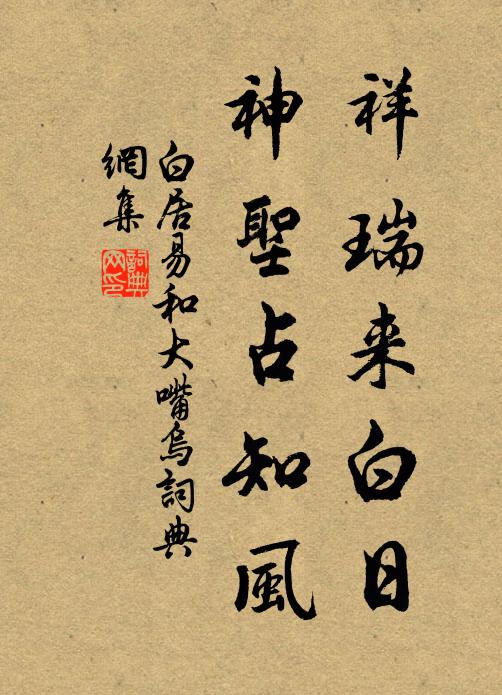 祥瑞来白日
神聖占知風
白居易和大嘴烏詞典
網集
詞典
网印